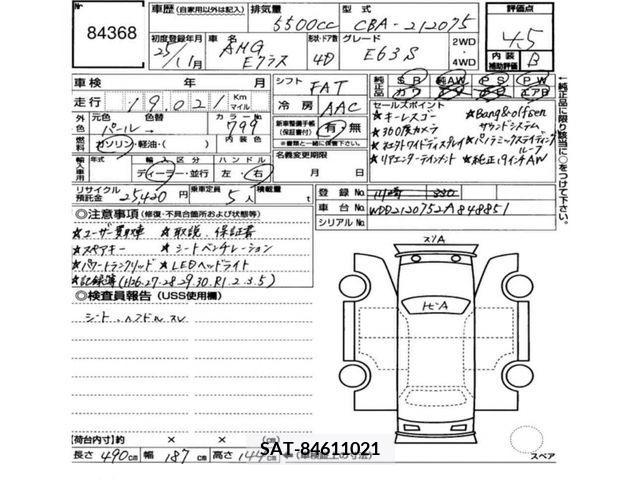 № 84368
車歴 (自家用以外は記入) 排気量 5500cc 型式 CBA-212075 評価点 4.5
初度登録年月 25/11月 車名 AMG Eクラス 形状・ドア数 4D グレード E63S 2WD・4WD 内装補助評価 B
車検 年 月 シフト FAT 純正品 SR 純AW PS PW
走行 19,021 Km マイル 冷房 AAC カワ エアB
外色 元色 パール 色替 カラーNo 799 新車整備手帳(保証書付) 有・無
※書類と一緒に保管下さい。
燃料 ガソリン・軽油・( ) 名義変更期限
輸入車用 年式 輸入区分 ディーラー・並行 ハンドル 左・右 月 日
リサイクル預託金 25420円 乗車定員 5人 積載量 t
セールスポイント
★キーレスゴー ★Bang&olfsen サウンドシステム
★360度カメラ ★パノラミックスライディングルーフ
★リアエンターテインメント ★純正19インチAW
←純正品に限り該当に○をつけて下さい。
登録No
車台No WDD2120752A848851
シリアルNo
◎注意事項 (修復・不具合箇所および状態等)
★ユーザー買取車 ★取説、保証書
★スペアキー ★シートベンチレーション
★パワートランクリッド ★LEDヘッドライト
★記録簿(H26.27.28.29.30.R1.2.3.5)
◎検査員報告 (USS使用欄)
シート、ハンドルスレ
スリA
トビA
【荷台内寸】約 × × cm
長さ 490cm 幅 187cm 高さ 144cm ←(車検証上の寸法)
SAT-84611021
スペア